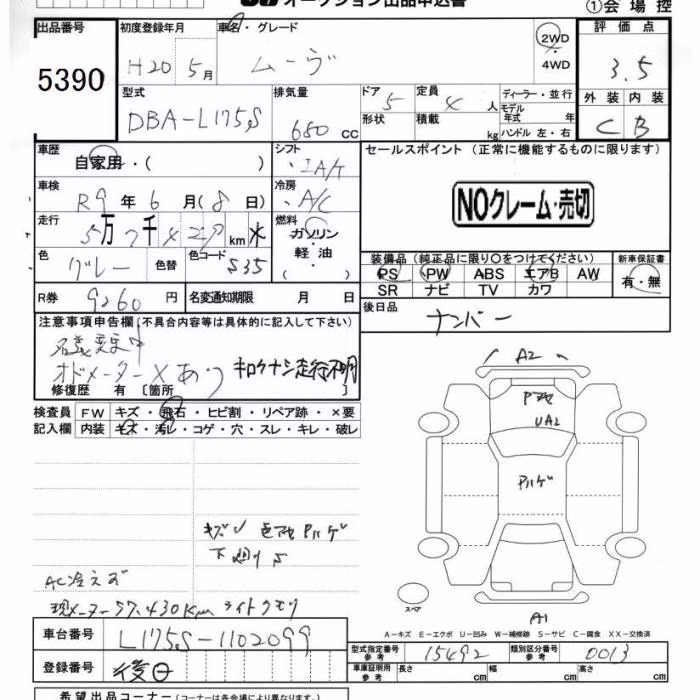 オークション出品申込書
①会場控
出品番号
5390
初度登録年月
H20 5月
車名・グレード
ムーヴ
2WD
4WD
評価点
3.5
外装 内装
C B
型式
DBA-L175S
排気量
660 cc
ドア 5
形状
定員 4 人
積載 kg
ディーラー・並行
モデル
年式 年
ハンドル 左・右
車歴
自家用・( )
シフト
IA/T
セールスポイント (正常に機能するものに限ります)
NOクレーム・売切
車検
R9年6月(8日)
冷房
A/C
走行
5万7千4 km
燃料
ガソリン
軽油
( )
色
グレー
色替
色コード
S35
装備品 (純正品に限り○をつけてください)
PS PW ABS エアB AW
SR ナビ TV カワ
新車保証書
有・無
R券
9260円
名変通知期限 月 日
後日品
ナンバー
注意事項申告欄(不具合内容等は具体的に記入して下さい)
オドメーターXあり キロクナシ走行不明
修復歴 有 〔箇所 〕
検査員
記入欄
FW キズ・飛石・ヒビ割・リペア跡・×要
内装 キズ・汚レ・コゲ・穴・スレ・キレ・破レ
A2
UA2
Pハゲ
キズ 色アセ Pハゲ
下廻りS
AC冷えず
現メーター57,430Km ライトクモリ
スペア
A1
A-キズ E-エクボ U-凹み W-補修跡 S-サビ C-腐食 XX-交換済
車台番号
L175S-1102099
登録番号
後日
型式指定番号
参考
15492
類別区分番号
参考
0013
車庫証明用
参考
長さ cm 幅 cm 高さ cm
希望出品コーナー(コーナーは各会場により異なります)